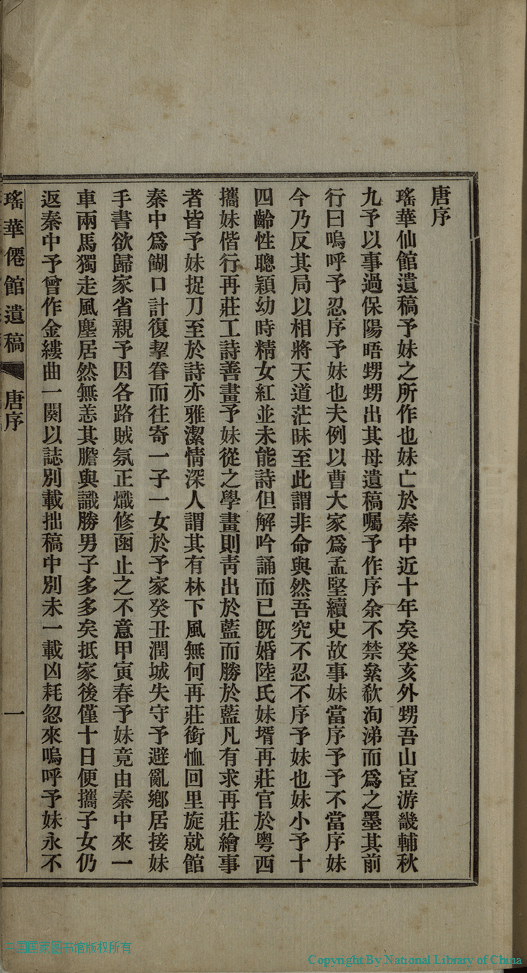 唐序
瑤華仙館遺稿予妹之所作也妹亡於秦中近十年矣癸亥外甥吾山宦游畿輔秋
九予以事過保陽晤甥甥出其母遺稿囑予作序余不禁絫欷洵涕而爲之墨其前
行曰嗚呼予忍序予妹也夫例以曹大家爲孟堅續史故事妹當序予予不當序妹
今乃反其局以相將天道茫昧至此謂非命與然吾究不忍不序予妹也妹小予十
四齡性聰穎幼時精女紅並未能詩但解吟誦而已旣婚陸氏妹壻再莊官於粤西
攜妹偕行再莊工詩善畫予妹從之學畫則靑出於藍而勝於藍凡有求再莊繪事
者皆予妹捉刀至於詩亦雅潔情深人謂其有林下風無何再莊銜恤回里旋就館
秦中爲餬口計復挈眷而往寄一子一女於予家癸丑潤城失守予避亂鄉居接妹
手書欲歸家省親予因各路賊氛正熾修函止之不意甲寅春予妹竟由秦中來一
車兩馬獨走風塵居然無恙其膽與識勝男子多多矣抵家後僅十日便攜子女仍
返秦中予曾作金縷曲一闋以誌別載拙稿中別未一載凶耗忽來嗚呼予妹永不
瑤華僊館遺稿
唐序
一
中国国家图书馆版权所有
Copyright By National Library of China